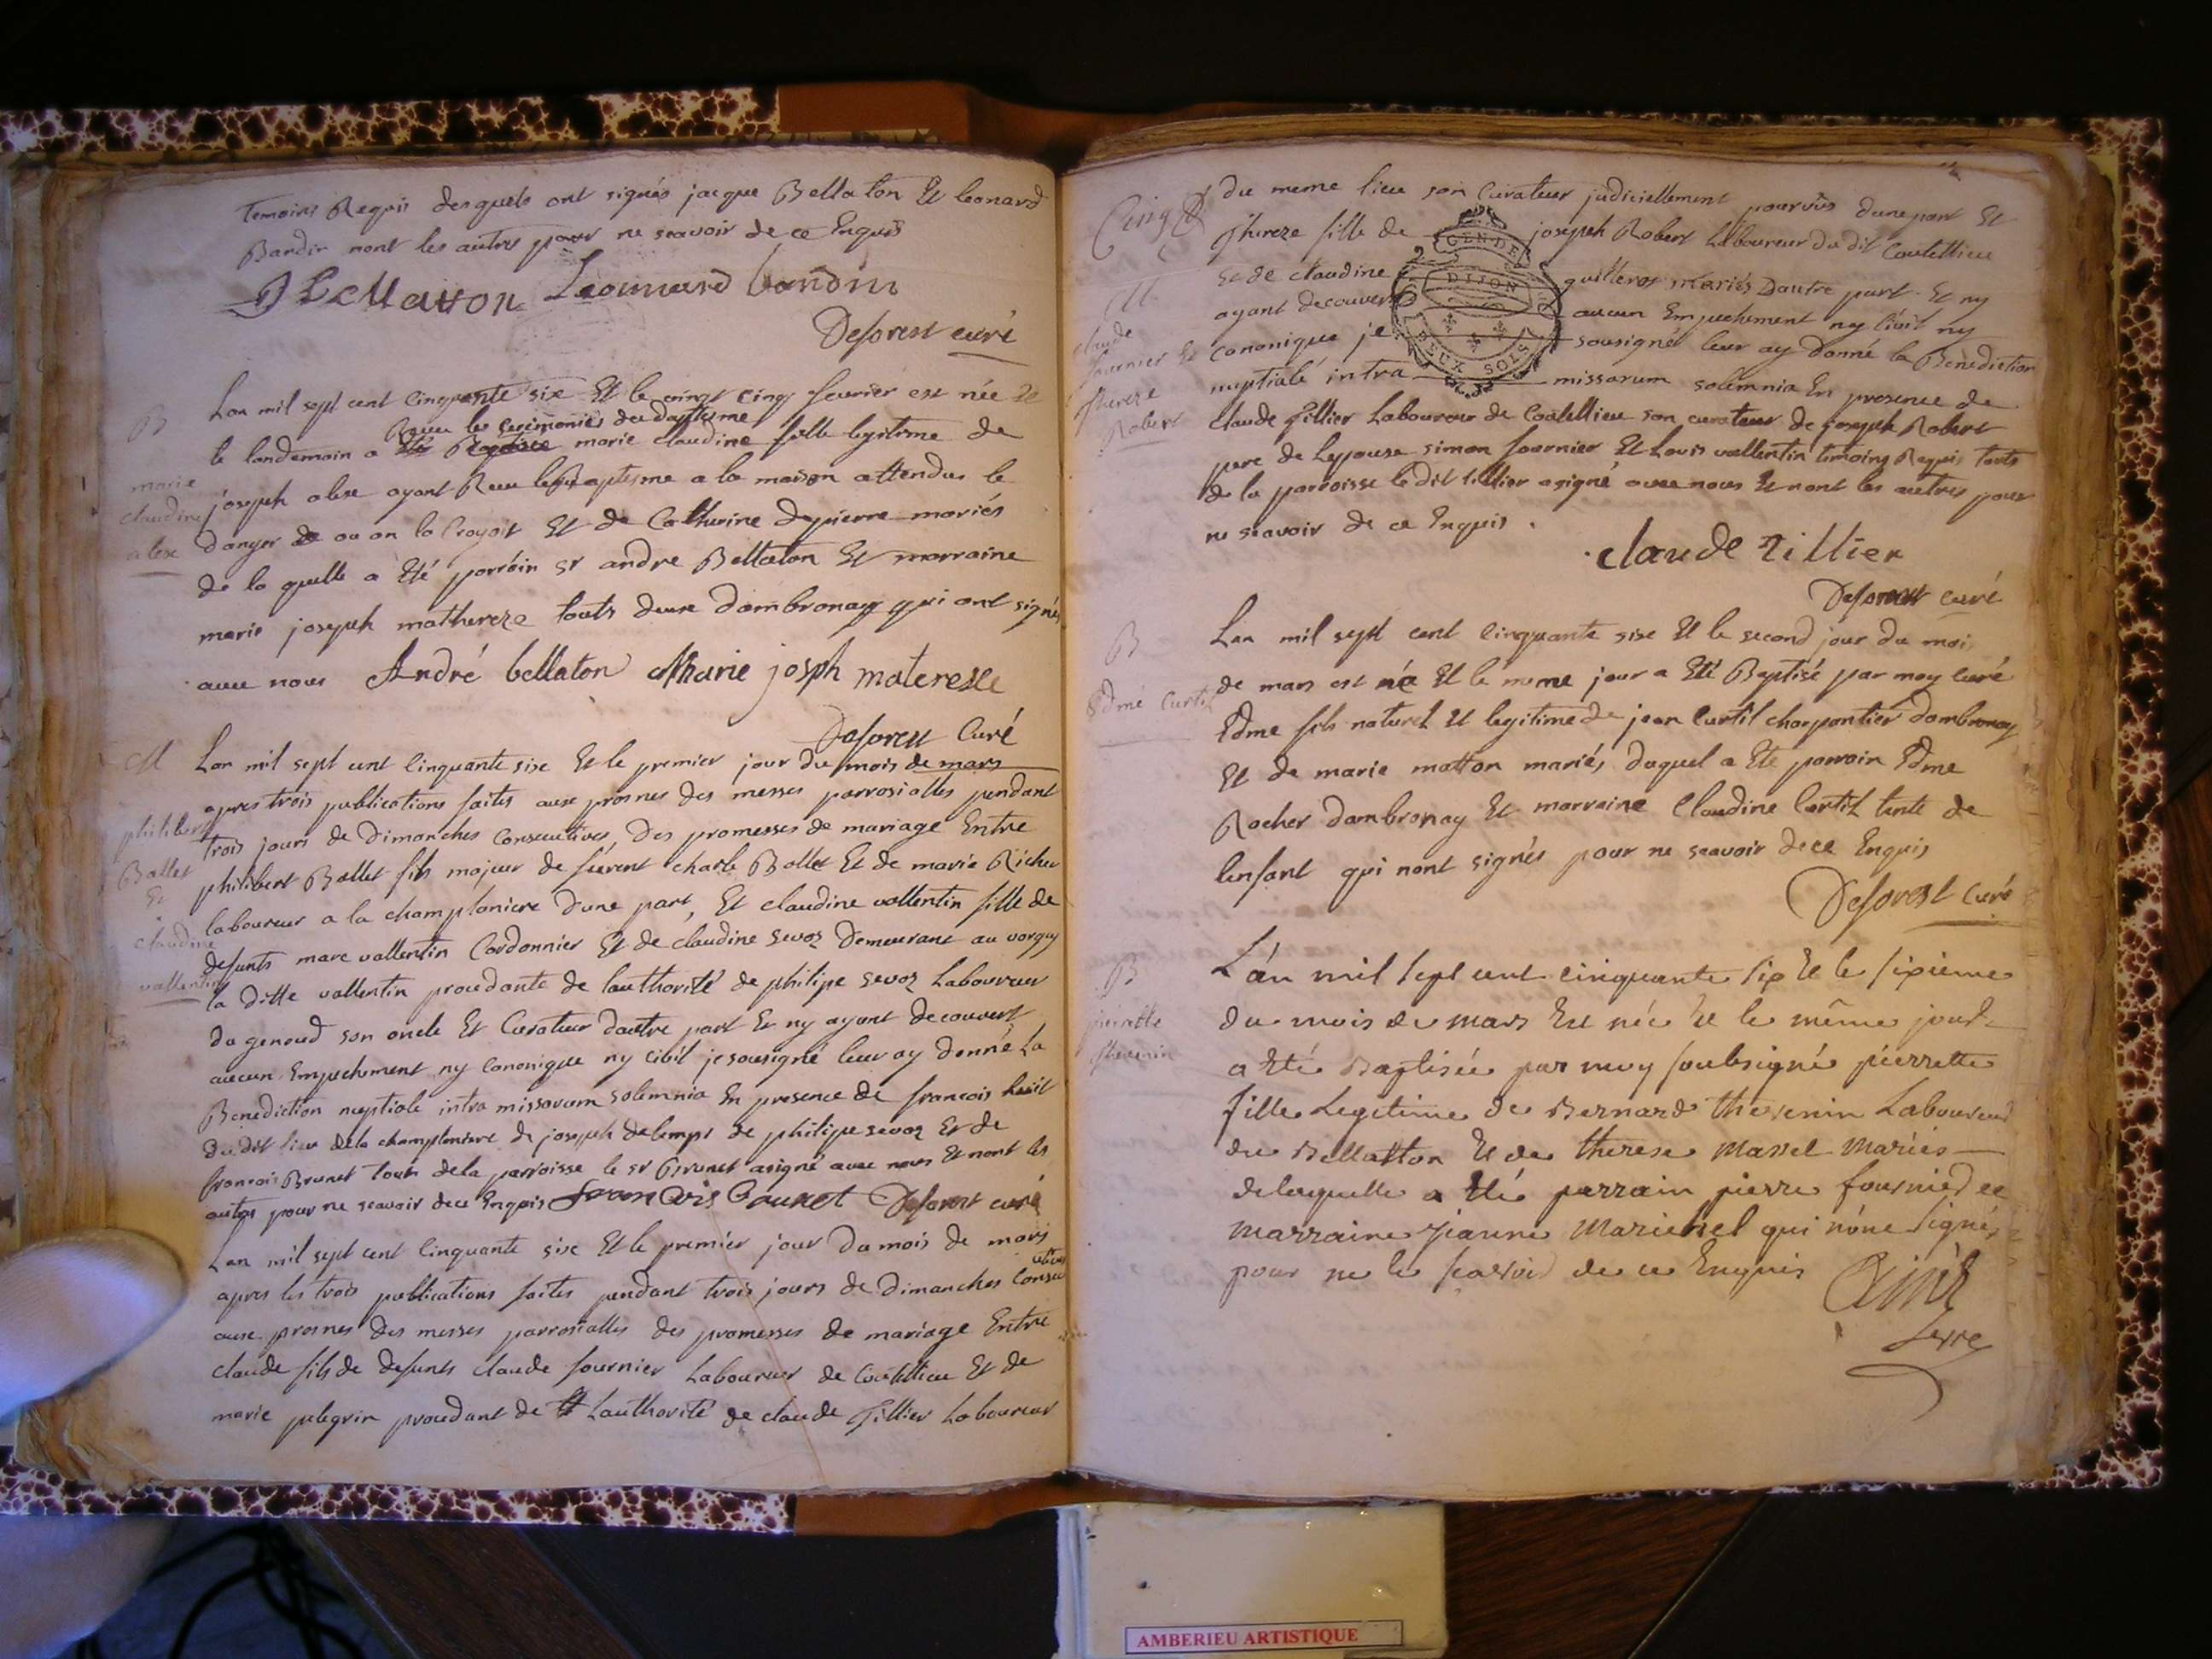 temoins Requis desquels ont signés jacque Bellaton Et leonard
Bardin nont les autres pour ne scavoir de ce Enquis
J Bellaton Leonnard bandin
Deforest curé
B
marie
claudine
alexe
Lan mil sept cent cinquante six Et le vingt cinq fevrier est née Et
Receu les ceremonies du Baptesme
le landemain a Eté Baptisée marie claudine fille legitime de
joseph alexe ayant Receu le Baptesme a la maison attendu le
danger ou on la croyoit Et de Catherine depierre mariés
de la quelle a Eté parrein sr andre Bellaton Et marraine
marie joseph mathereze touts deux dambronay qui ont signés
avec nous André bellaton Marie joseph materesse
Deforest Curé
M
philibert
Ballet
Et
claudine
vallentin
Lan mil sept cent cinquante sixe Et le premier jour du mois de mars
apres trois publications faites auxe prosnes des messes parrosialles pendant
trois jours de Dimanches Consecutives, Des promesses de mariage Entre
philibert Ballet fils majeur de charle Ballet Et de marie Richer
laboureur a la champlaniere Dune part, Et claudine vallentin fille de
defunts marc vallentin Cordonnier Et de claudine sevoz Demeurant au
la Ditte vallentin procedante de lauthorité de philipe sevoz Laboureur
du genoud son oncle Et Curateur dautre part Et ny ayant decouvert
aucun Empechement ny Canonique ny civil je sousigné leur ay donné La
Benediction nuptiale intra missarum solemnia En presence de francois
du dit lieu dela champlaniere de joseph delemps de philipe sevoz Et de
francois Brunet touts dela parroisse le sr Brunet asigné avec nous Et nont les
autres pour ne scavoir dece Enquis francois Brunet Deforest curé
Lan mil sept cent cinquante sixe Et le premier jour du mois de mars
apres les trois publications faites pendant trois jours de Dimanches Consecutives
auxe prosnes des messes parrosialles des promesses de mariage Entre
claude fils de defunts claude fournier Laboureur de Coutellieu Et de
marie pelegrin procedant de Lauthorité de claude Tillier Laboureur
Cinq
M
claude
fournier Et
thereze
Robert
du meme lieu son Curateur judiciellement pourvus dune part Et
Thereze fille de joseph Robert Laboureur du dit Coutellieu
Et de claudine mariés Dautre part Et ny
ayant decouvert aucun Empechement ny Civil ny
canonique je sousigné leur ay donné la Benediction
nuptiale intra missarum solemnia En presence de
claude Tillier Laboureur de Coutellieu son curateur de joseph Robert
pere de Lepouse simon fournier Et Louis vallentin temoins Requis touts
de la parroisse le dit tillier asigné avec nous Et nont les autres pour
ne scavoir de ce Enquis.
GEN DE
DIJON
DEUX SOLS
claude tillier
Deforest curé
B
Edme Curtil
Lan mil sept cent cinquante sixe Et le second jour du mois
de mars est né Et le meme jour a Eté Baptisé par moy curé
Edme fils naturel Et legitime de jean Curtil charpantier dambronay
Et de marie matton mariés, duquel a Eté parrain Edme
Rocher dambronay Et marraine Claudine Curtil tente de
lenfant qui nont signés pour ne scavoir dece Enquis
Deforest curé
B
pierrette
thevenin
L'an mil sept cent cinquante six Et le sixieme
du mois de mars Est née Et le même jour
a Eté Baptisée par moy soubsigné pierrette
fille Legitime de Bernard thevenin Laboureur
du Bellatton Et de therese Massel Mariés
delaquelle a Eté parrain pierre fournier Et
marraine jeanne qui n'one signés
pour ne le scavoir de ce Enquis
AMBERIEU ARTISTIQUE